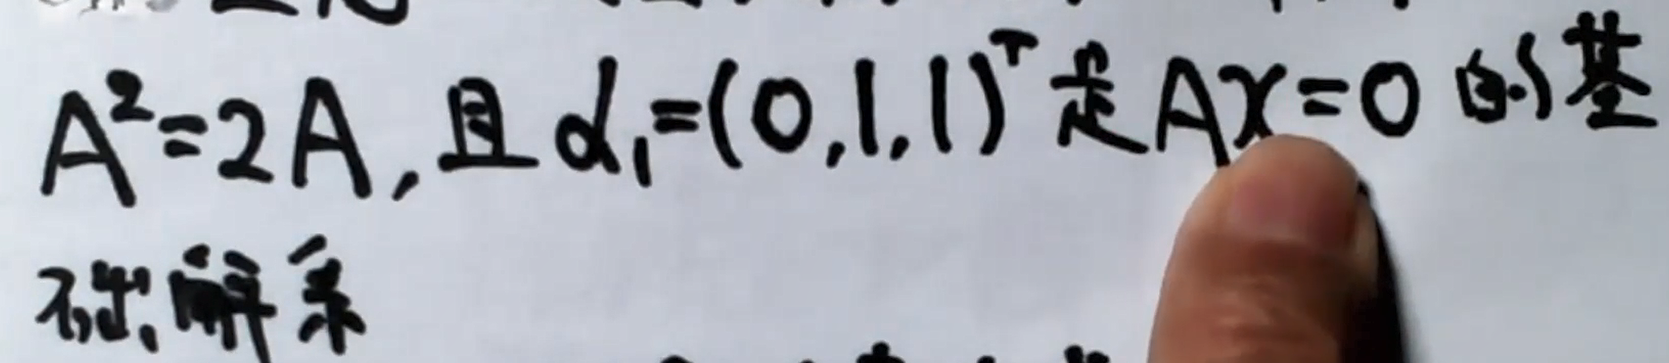 A²=2A,且α₁=(0,1,1)ᵀ是Ax=0的基
础解系